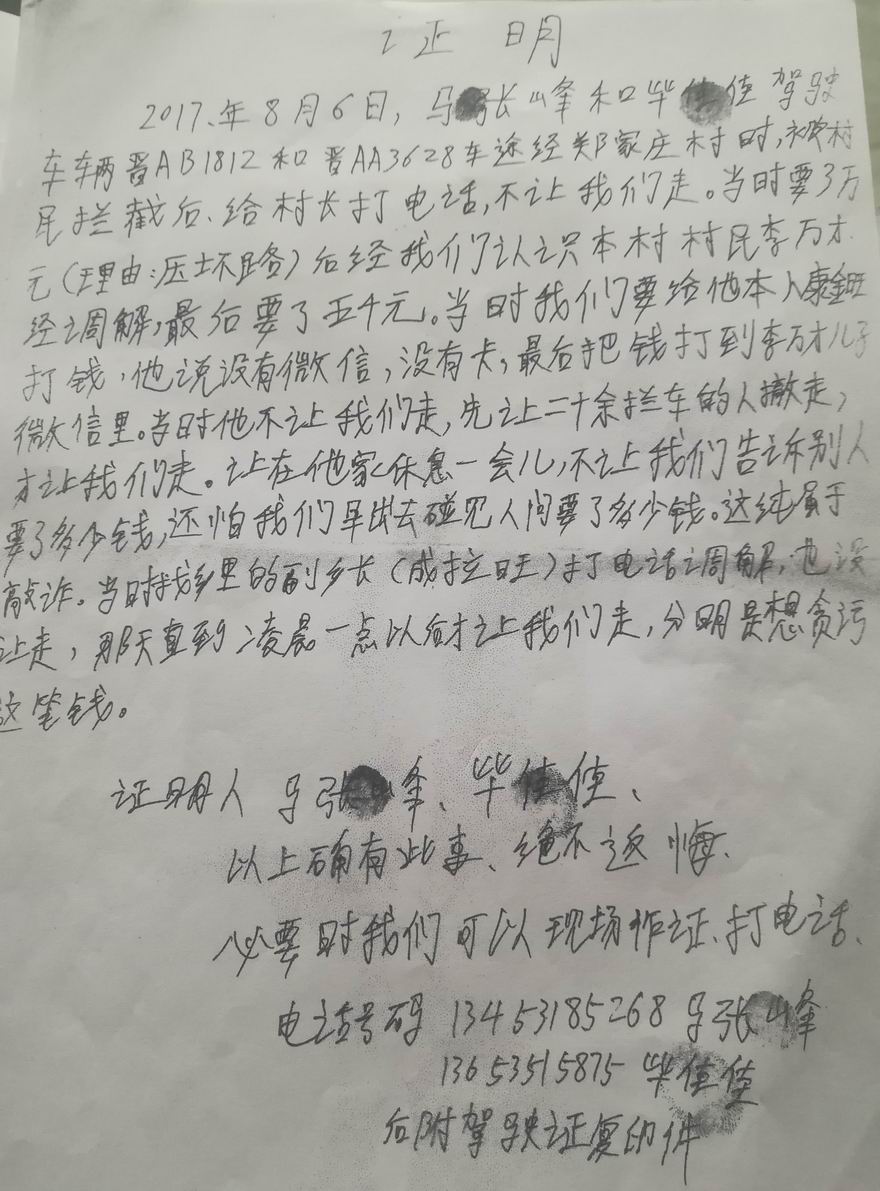 证明
2017.年8月6日,马张峰和毕佳佳驾驶
车辆晋AB1812和晋AA3628车途经郑家庄村时,被村
民拦截后、给村长打电话,不让我们走。当时要了万
元(理由:压坏路)后经我们认识本村村民李万才
经调解,最后要了五千元。当时我们要给他本人康金旺
打钱,他说没有微信,没有卡,最后把钱打到李万才儿子
微信里。当时他不让我们走,先让二十余拦车的人撤走,
才让我们走。让在他家休息一会儿,不让我们告诉别人
要了多少钱,还怕我们早出去碰见人问要了多少钱。这纯属于
敲诈。当时找乡里的副乡长(成拉旺)打电话调解,也没
让走,那天直到凌晨一点以后才让我们走,分明是想贪污
这笔钱。
证明人 马张峰、毕佳佳、
以上确有此事、绝不返悔、
必要时我们可以现场作证、打电话、
电话号码 13453185268 马张峰
13653515875 毕佳佳
后附驾驶证复印件